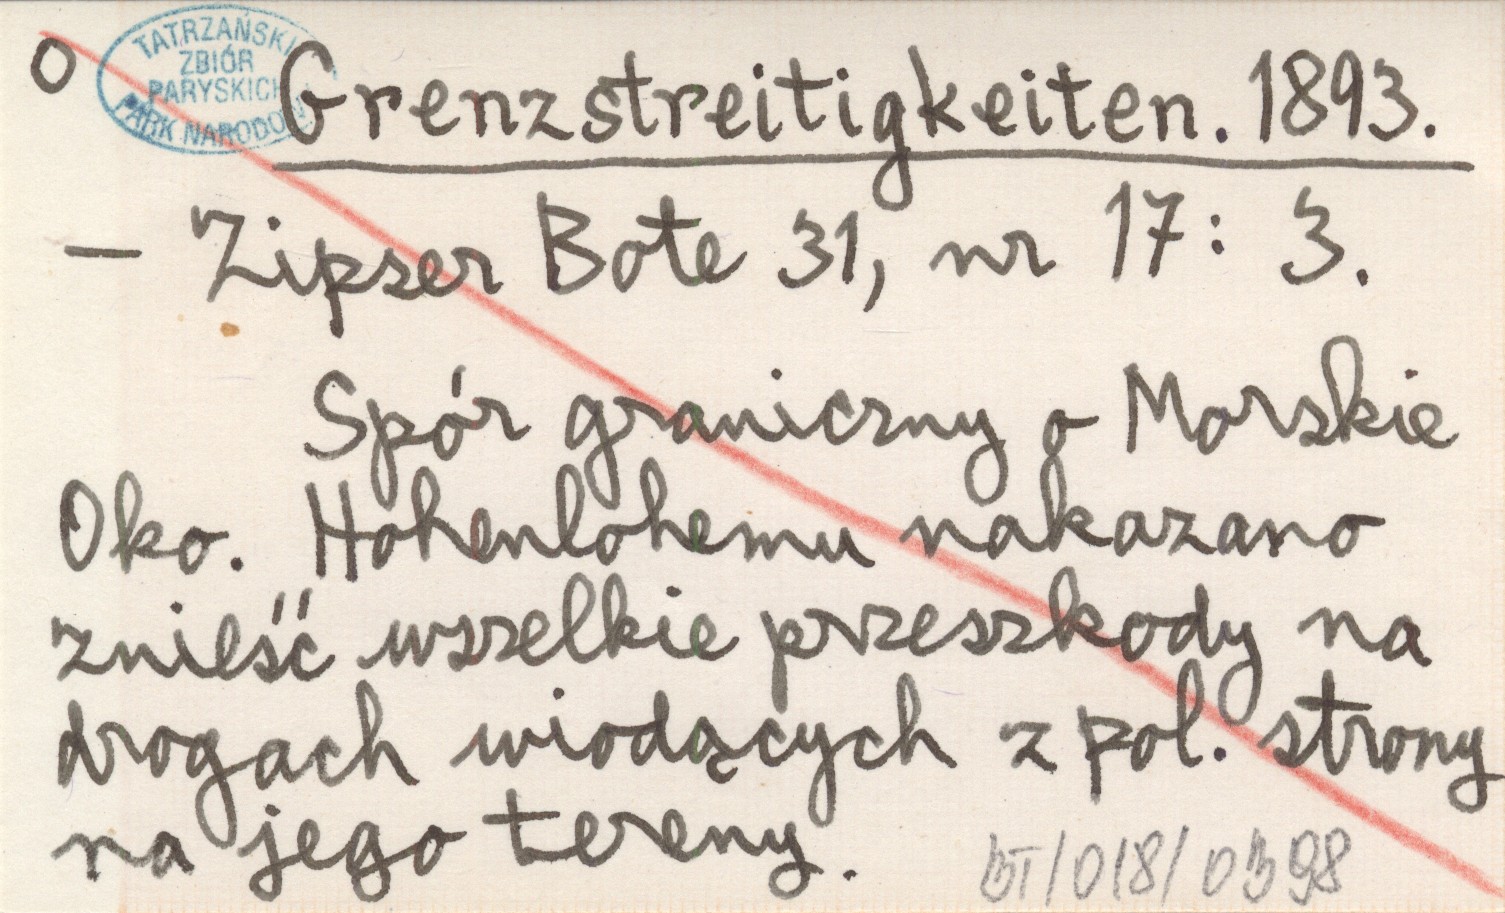 O
TATRZAŃSKI
ZBIÓR
PARYSKICH
PARK NARODOWY
Grenzstreitigkeiten. 1893.
— Zipser Bote 31, nr 17: 3.
Spór graniczny o Morskie
Oko. Hohenlohemu nakazano
znieść wszelkie przeszkody na
drogach wiodących z pol. strony
na jego tereny.
BT/018/0398